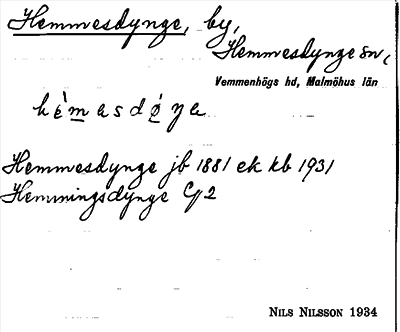 Hemmesdynge, by,
Hemmesdynge sn,
Vemmenhögs hd, Malmöhus län
Hemmesdynge jb 1881 ek kb 1931
Hemmingsdynge
NILS NILSSON 1934